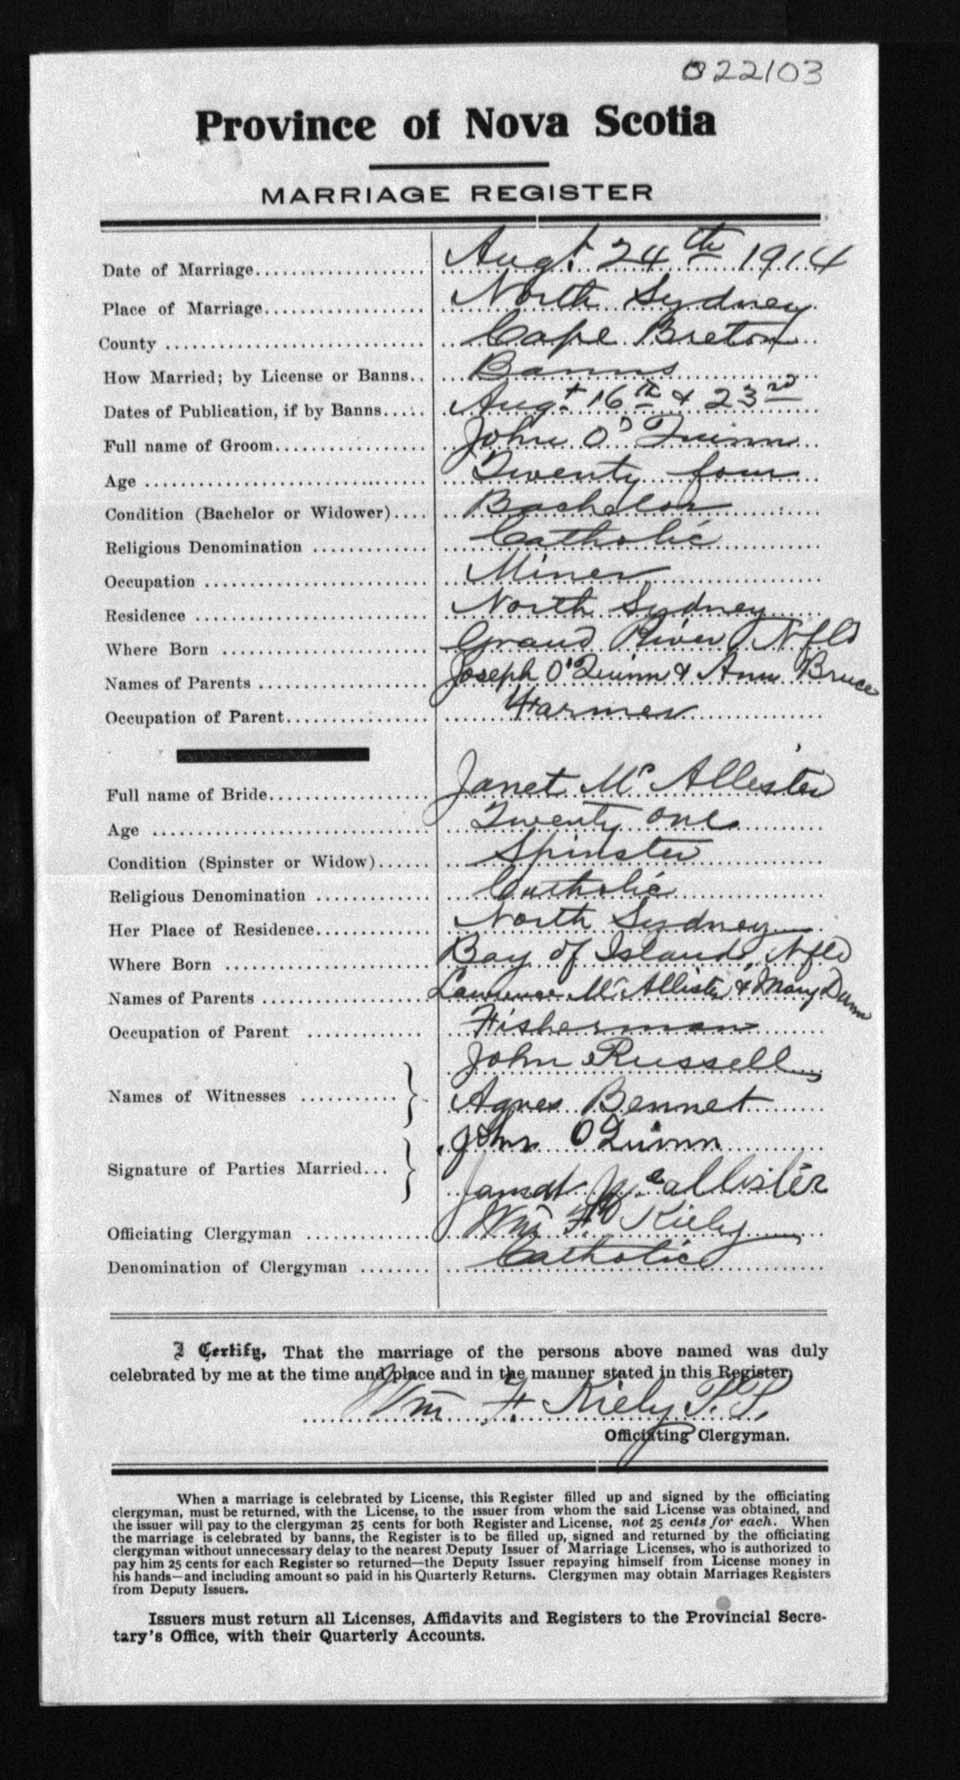 022103
Province of Nova Scotia
MARRIAGE REGISTER
Date of Marriage Augt 24th 1914
Place of Marriage North Sydney
County Cape Breton
How Married; by License or Banns Banns
Dates of Publication, if by Banns Augt 16th & 23rd
Full name of Groom John O'Quinn
Age Twenty four
Condition (Bachelor or Widower) Bachelor
Religious Denomination Catholic
Occupation Miner
Residence North Sydney
Where Born Grand River Nfld
Names of Parents Joseph O'Quinn & Ann Bruce
Occupation of Parent Farmer
Full name of Bride Janet Mc Allister
Age Twenty one
Condition (Spinster or Widow) Spinster
Religious Denomination Catholic
Her Place of Residence North Sydney
Where Born Bay of Islands Nfld
Names of Parents Lawrence Mc Allister & Mary Dunn
Occupation of Parent Fisherman
John Russell
Names of Witnesses
Agnes Bennet
John O Quinn
Signature of Parties Married
Mcallister
Officiating Clergyman Wm F Kiely
Denomination of Clergyman Catholic
I Certify, That the marriage of the persons above named was duly
celebrated by me at the time and place and in the manner stated in this Register,
Wm F. Kiely P.P.
Officiating Clergyman.
When a marriage is celebrated by License, this Register filled up and signed by the officiating
clergyman, must be returned, with the License, to the issuer from whom the said License was obtained, and
the issuer will pay to the clergyman 25 cents for both Register and License, not 25 cents for each. When
the marriage is celebrated by banns, the Register is to be filled up, signed and returned by the officiating
clergyman without unnecessary delay to the nearest Deputy Issuer of Marriage Licenses, who is authorized to
pay him 25 cents for each Register so returned—the Deputy Issuer repaying himself from License money in
his hands—and including amount so paid in his Quarterly Returns. Clergymen may obtain Marriages Registers
from Deputy Issuers.
Issuers must return all Licenses, Affidavits and Registers to the Provincial Secre-
tary's Office, with their Quarterly Accounts.